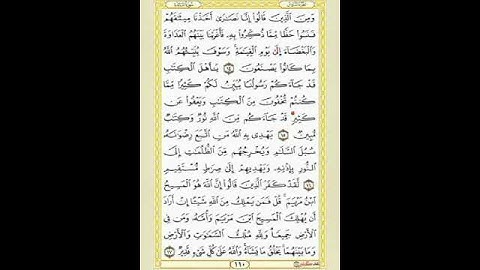 وَمِنَ الَّذِينَ قَالُوا إِنَّا نَصَارَى أَخَذْنَا مِيثَاقَهُمْ
فَنَسُوا حَظًّا مِمَّا ذُكِّرُوا بِهِ فَأَغْرَيْنَا بَيْنَهُمُ الْعَدَاوَةَ
وَالْبَغْضَاءَ إِلَى يَوْمِ الْقِيَامَةِ وَسَوْفَ يُنَبِّئُهُمُ اللَّهُ
بِمَا كَانُوا يَصْنَعُونَ ١٤ يَا أَهْلَ الْكِتَابِ
قَدْ جَاءَكُمْ رَسُولُنَا يُبَيِّنُ لَكُمْ كَثِيرًا مِمَّا
كُنْتُمْ تُخْفُونَ مِنَ الْكِتَابِ وَيَعْفُو عَنْ
كَثِيرٍ قَدْ جَاءَكُمْ مِنَ اللَّهِ نُورٌ وَكِتَابٌ
مُبِينٌ ١٥ يَهْدِي بِهِ اللَّهُ مَنِ اتَّبَعَ رِضْوَانَهُ
سُبُلَ السَّلَامِ وَيُخْرِجُهُمْ مِنَ الظُّلُمَاتِ إِلَى
النُّورِ بِإِذْنِهِ وَيَهْدِيهِمْ إِلَى صِرَاطٍ مُسْتَقِيمٍ
١٦ لَقَدْ كَفَرَ الَّذِينَ قَالُوا إِنَّ اللَّهَ هُوَ الْمَسِيحُ
ابْنُ مَرْيَمَ قُلْ فَمَنْ يَمْلِكُ مِنَ اللَّهِ شَيْئًا إِنْ أَرَادَ
أَنْ يُهْلِكَ الْمَسِيحَ ابْنَ مَرْيَمَ وَأُمَّهُ وَمَنْ فِي
الْأَرْضِ جَمِيعًا وَلِلَّهِ مُلْكُ السَّمَاوَاتِ وَالْأَرْضِ
وَمَا بَيْنَهُمَا يَخْلُقُ مَا يَشَاءُ وَاللَّهُ عَلَى كُلِّ شَيْءٍ قَدِيرٌ ١٧
١١٠